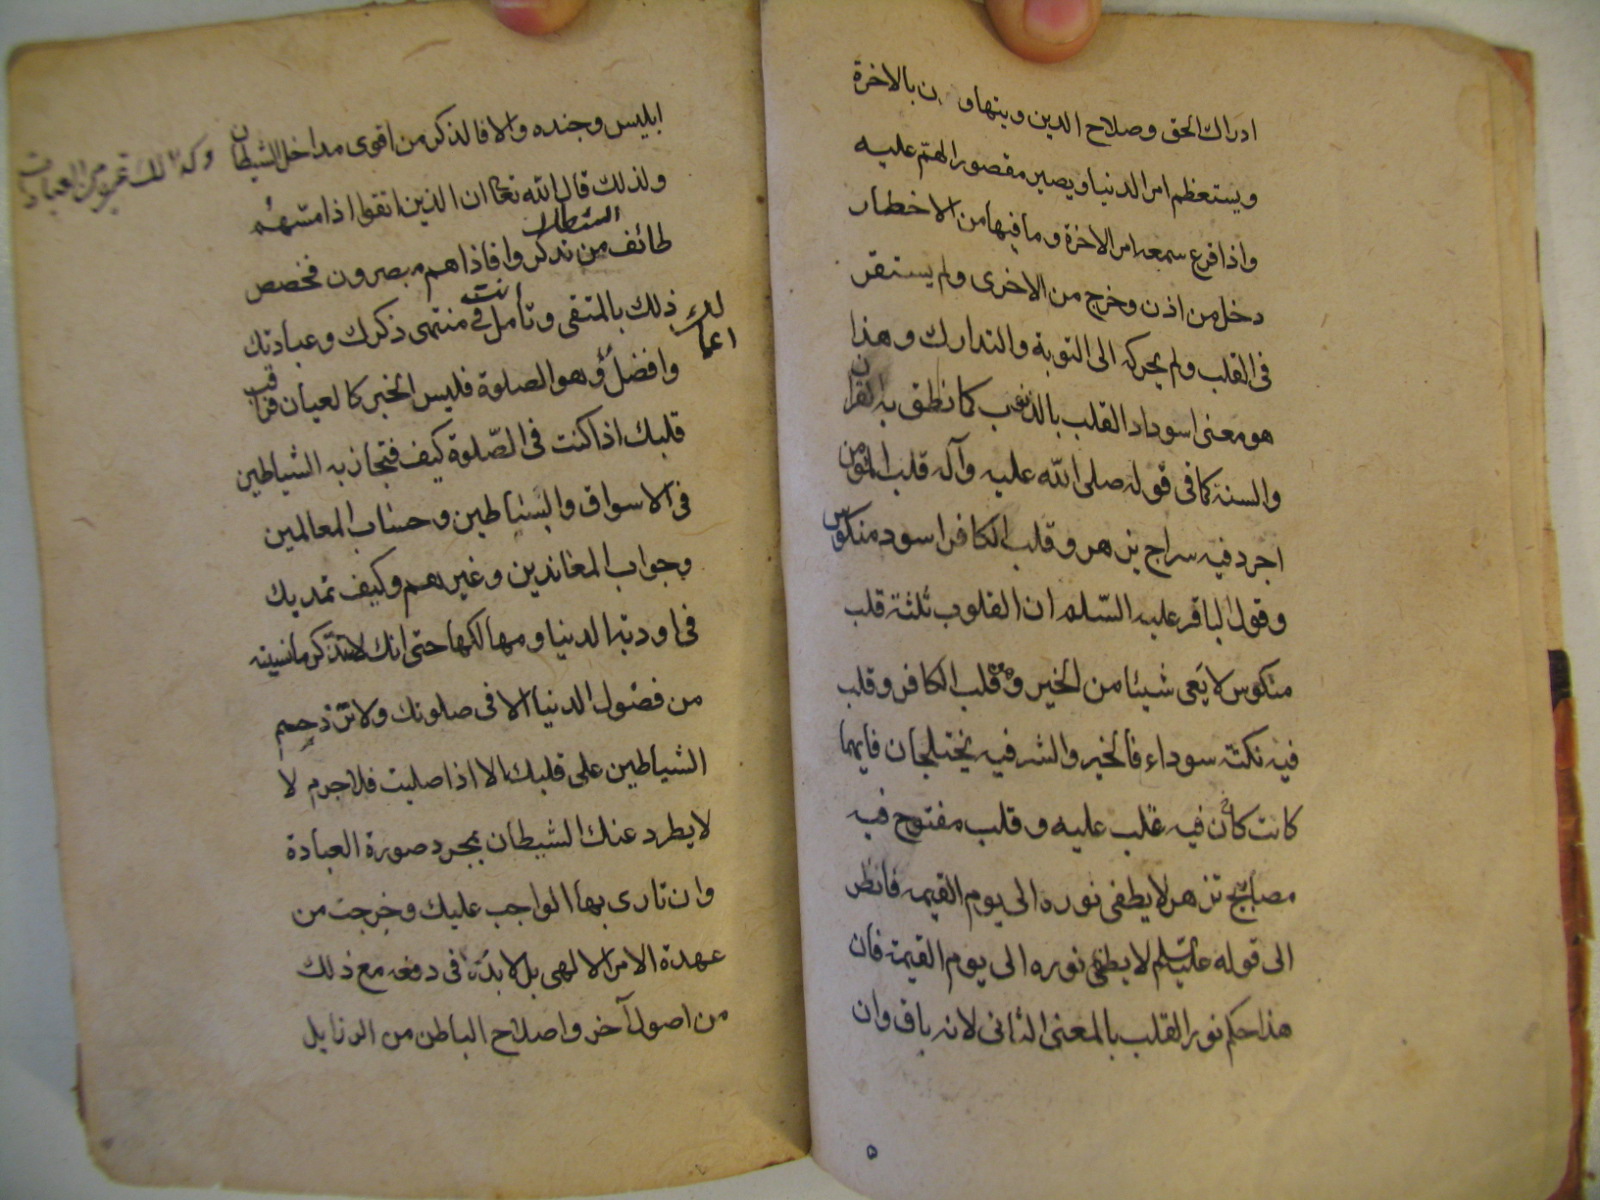 ادراك الحق وصلاح الدين ويتهاون بالاخرة
ويستعظم امر الدنيا ويصير مقصور الهم عليه
واذا قرع سمعه امر الاخرة وما فيها من الاخطار
دخل من اذن وخرج من الاخرى ولم يستقر
فى القلب ولم يحركه الى التوبة والتدارك وهذا
هو معنى اسوداد القلب بالذنوب كما نطق به القران
والسنة كما فى قوله صلى الله عليه وآله قلب المؤمن
اجرد فيه سراج يزهر وقلب الكافر اسود منكوس
وقول الباقر عليه السلم ان القلوب ثلثة قلب
منكوس لا يعى شيئا من الخير وهو قلب الكافر وقلب
فيه نكتة سوداء فالخير والشر فيه يختلجان فايهما
كانت كان فيه غلب عليه وقلب مفتوح فيه
مصابيح تزهر لا يطفى نوره الى يوم القيمه فانظر
الى قوله عليه السلم لا يطفى نوره الى يوم القيمة فان
هذا حكم نور القلب بالمعنى الثانى لانه باق وان
ابليس وجنده والا فالذكر من اقوى مداخل الشيطان وكذلك غيره من العبادات
ولذلك قال الله تعا ان الذين اتقوا اذا مسهم
طائف من الشيطان تذكروا فاذا هم مبصرون فخصص
ذلك بالمتقى وتأمل انت فى منتهى ذكرك وعبادتك
وافضل وهو الصلوة فليس الخبر كالعيان فراقب
قلبك اذا كنت فى الصلوة كيف تتجاذبه الشياطين
فى الاسواق والبساطين وحساب المعالمين
وجواب المعاندين وغيرهم وكيف تمد بك
فى اودية الدنيا ومهالكها حتى انك لا تتذكر ما نسيته
من فضول الدنيا الا فى صلوتك ولا تزدحم
الشياطين على قلبك الا اذا صليت فلا جرم لا
لا يطرد عنك الشيطان بمجرد صورة العبادة
وان تادى بها الواجب عليك وخرجت من
عهدة الامر الالهى بل لا بد فى دفعه مع ذلك
من اصول آخر واصلاح الباطن من الرذايل